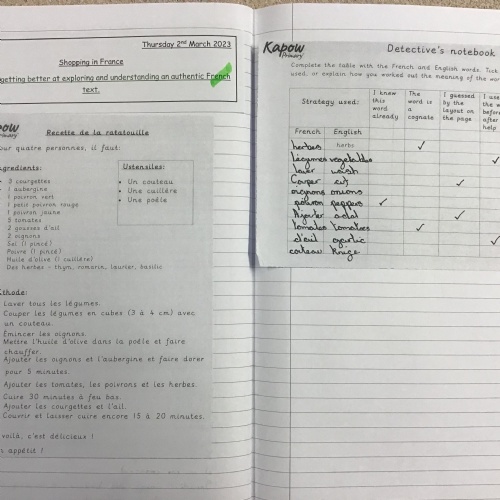 Thursday 2nd March 2023
Shopping in France
getting better at exploring and understanding an authentic French
text.
Primary
Recette de la ratatouille
our quatre personnes, il faut:
ngredients:
3 courgettes
1 aubergine
1 poivron vert
1 petit poivron rouge
1 poivron jaune
5 tomates
2 gousses d'ail
2 oignons
Sel (1 pincé)
Poivre (1 pincé)
Huile d'olive (1 cuillère)
Des herbes - thym, romarin, laurier, basilic
Ustensiles:
Un couteau
Une cuillère
Une poêle
thode:
Laver tous les légumes.
Couper les légumes en cubes (3 à 4 cm) avec
un couteau.
Emincer les oignons.
Mettre l'huile d'olive dans la poêle et faire
chauffer.
Ajouter les oignons et l'aubergine et faire dorer
pour 5 minutes.
Ajouter les tomates, les poivrons et les herbes.
Cuire 30 minutes à feu bas.
Ajouter les courgettes et l'ail.
Couvrir et laisser cuire encore 15 à 20 minutes.
voilà, c'est délicieux !
n appétit !
Kapow
Primary
Detective's notebook
Complete the table with the French and English words. Tick
used, or explain how you worked out the meaning of the wor
Strategy used:
I knew this word already
The word is a cognate
I guessed by the layout on the page
French English
herbes herbs
légumes vegetables
laver wash
Couper cut
oignons onions
poivron peppers
Ajouter add
tomates tomatoes
d'ail garlic
couteau knife